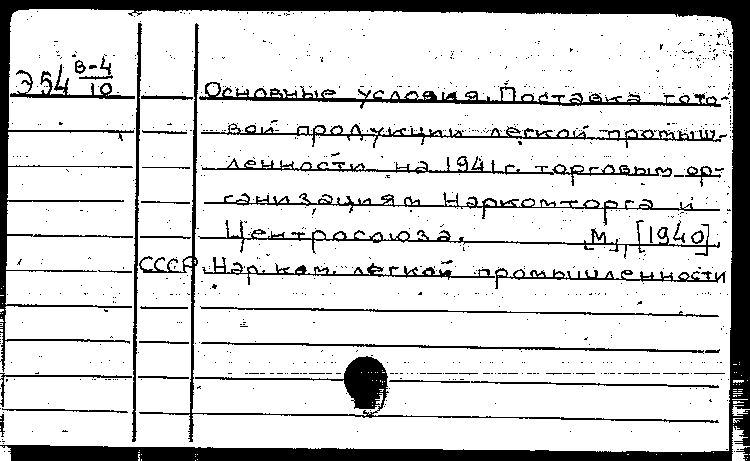 Э54 В-4/10
Основные условия. Поставка гото-
вой продукции легкой промыш-
ленности на 1941 г. торговым ор-
ганизациям Наркомторга и
Центросоюза. [М], [1940].
СССР. Нар. ком. легкой промышленности